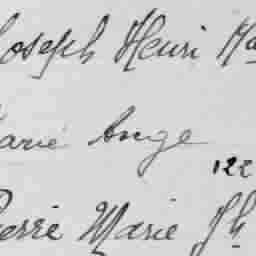 Joseph Henri Ma
Marie Ange
122
Pierre Marie Jh